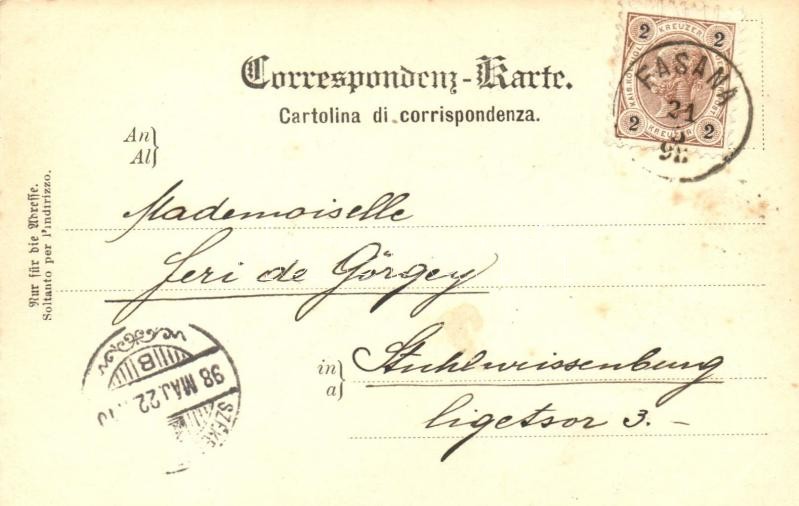 Correspondenz-Karte.
Cartolina di corrispondenza.
2 KREUZER 2
2 KREUZER 2
FASANA
21
5
98
An
Al
Mademoiselle
Jeri de Görgey
in
a
Stuhlweissenburg
ligetsor 3. –
Nur für die Adresse.
Soltanto per l'indirizzo.
B
98 MÁJ. 22